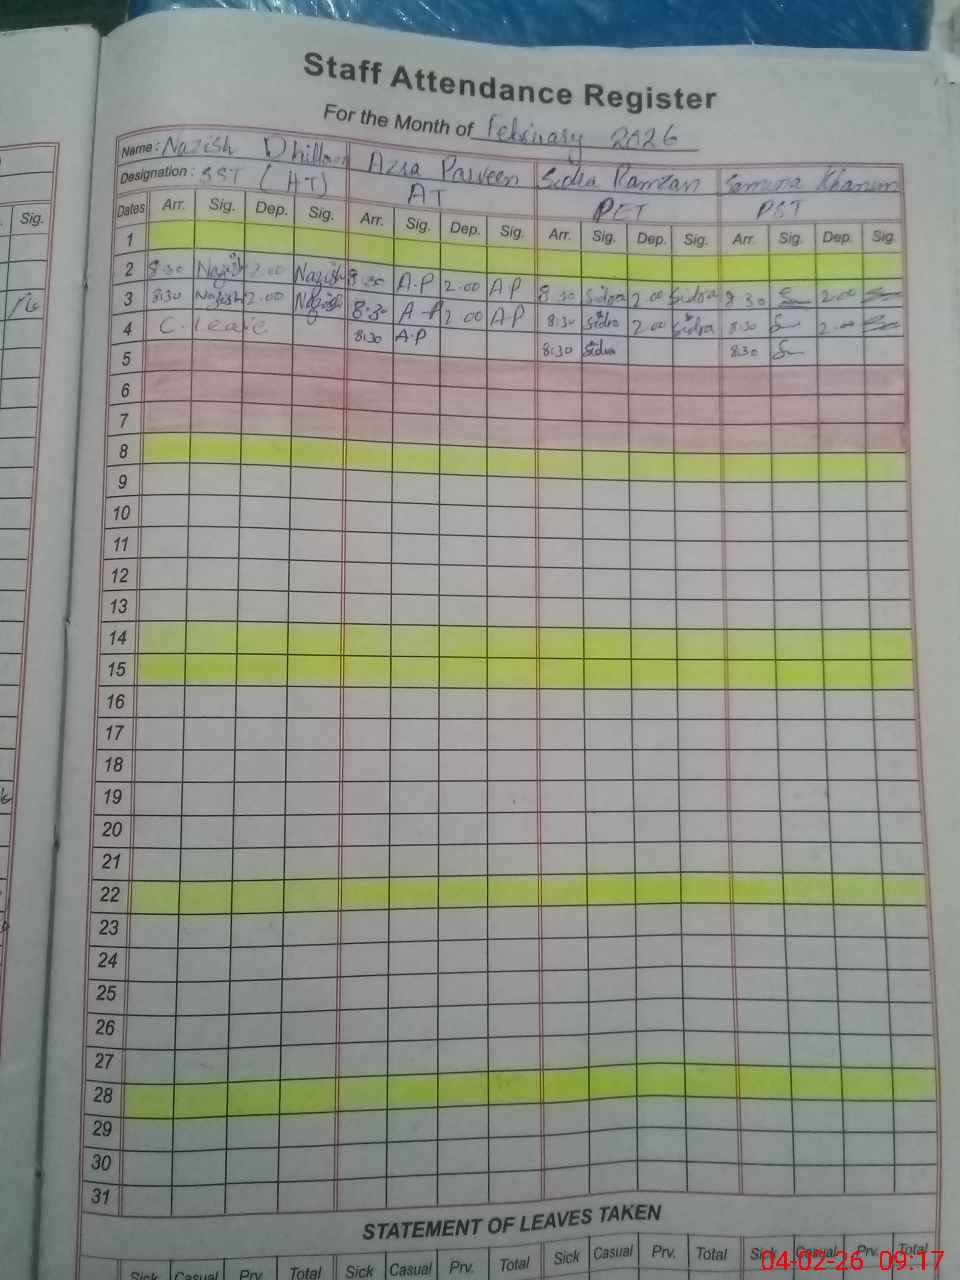 Staff Attendance Register
For the Month of February 2026
Name: Nazish Dhilloon Azra Parveen Sidra Ramzan Samina Khanum
Designation: SST (HT) AT PET PST
Sig. Dates Arr. Sig. Dep. Sig. Arr. Sig. Dep. Sig. Arr. Sig. Dep. Sig. Arr. Sig. Dep. Sig.
1
2 8:30 Nazish 2.00 Nazish 8:30 A.P 2.00 AP 8 30 Sidra 2 00 Sidra 8 30 2.00
3 8:30 Nazish 2.00 Nazish 8:30 A-P 2 00 AP 8:30 Sidra 2 00 Sidra 8:30
4 C. Leave 8:30 A-P 8:30 Sidra 8:30
5
6
7
8
9
10
11
12
13
14
15
16
17
18
19
20
21
22
23
24
25
26
27
28
29
30
31
STATEMENT OF LEAVES TAKEN
Sick Casual Prv. Total Sick Casual Prv. Total Sick Casual Prv. Total Sick Casual Prv. Total
04-02-26 09:17